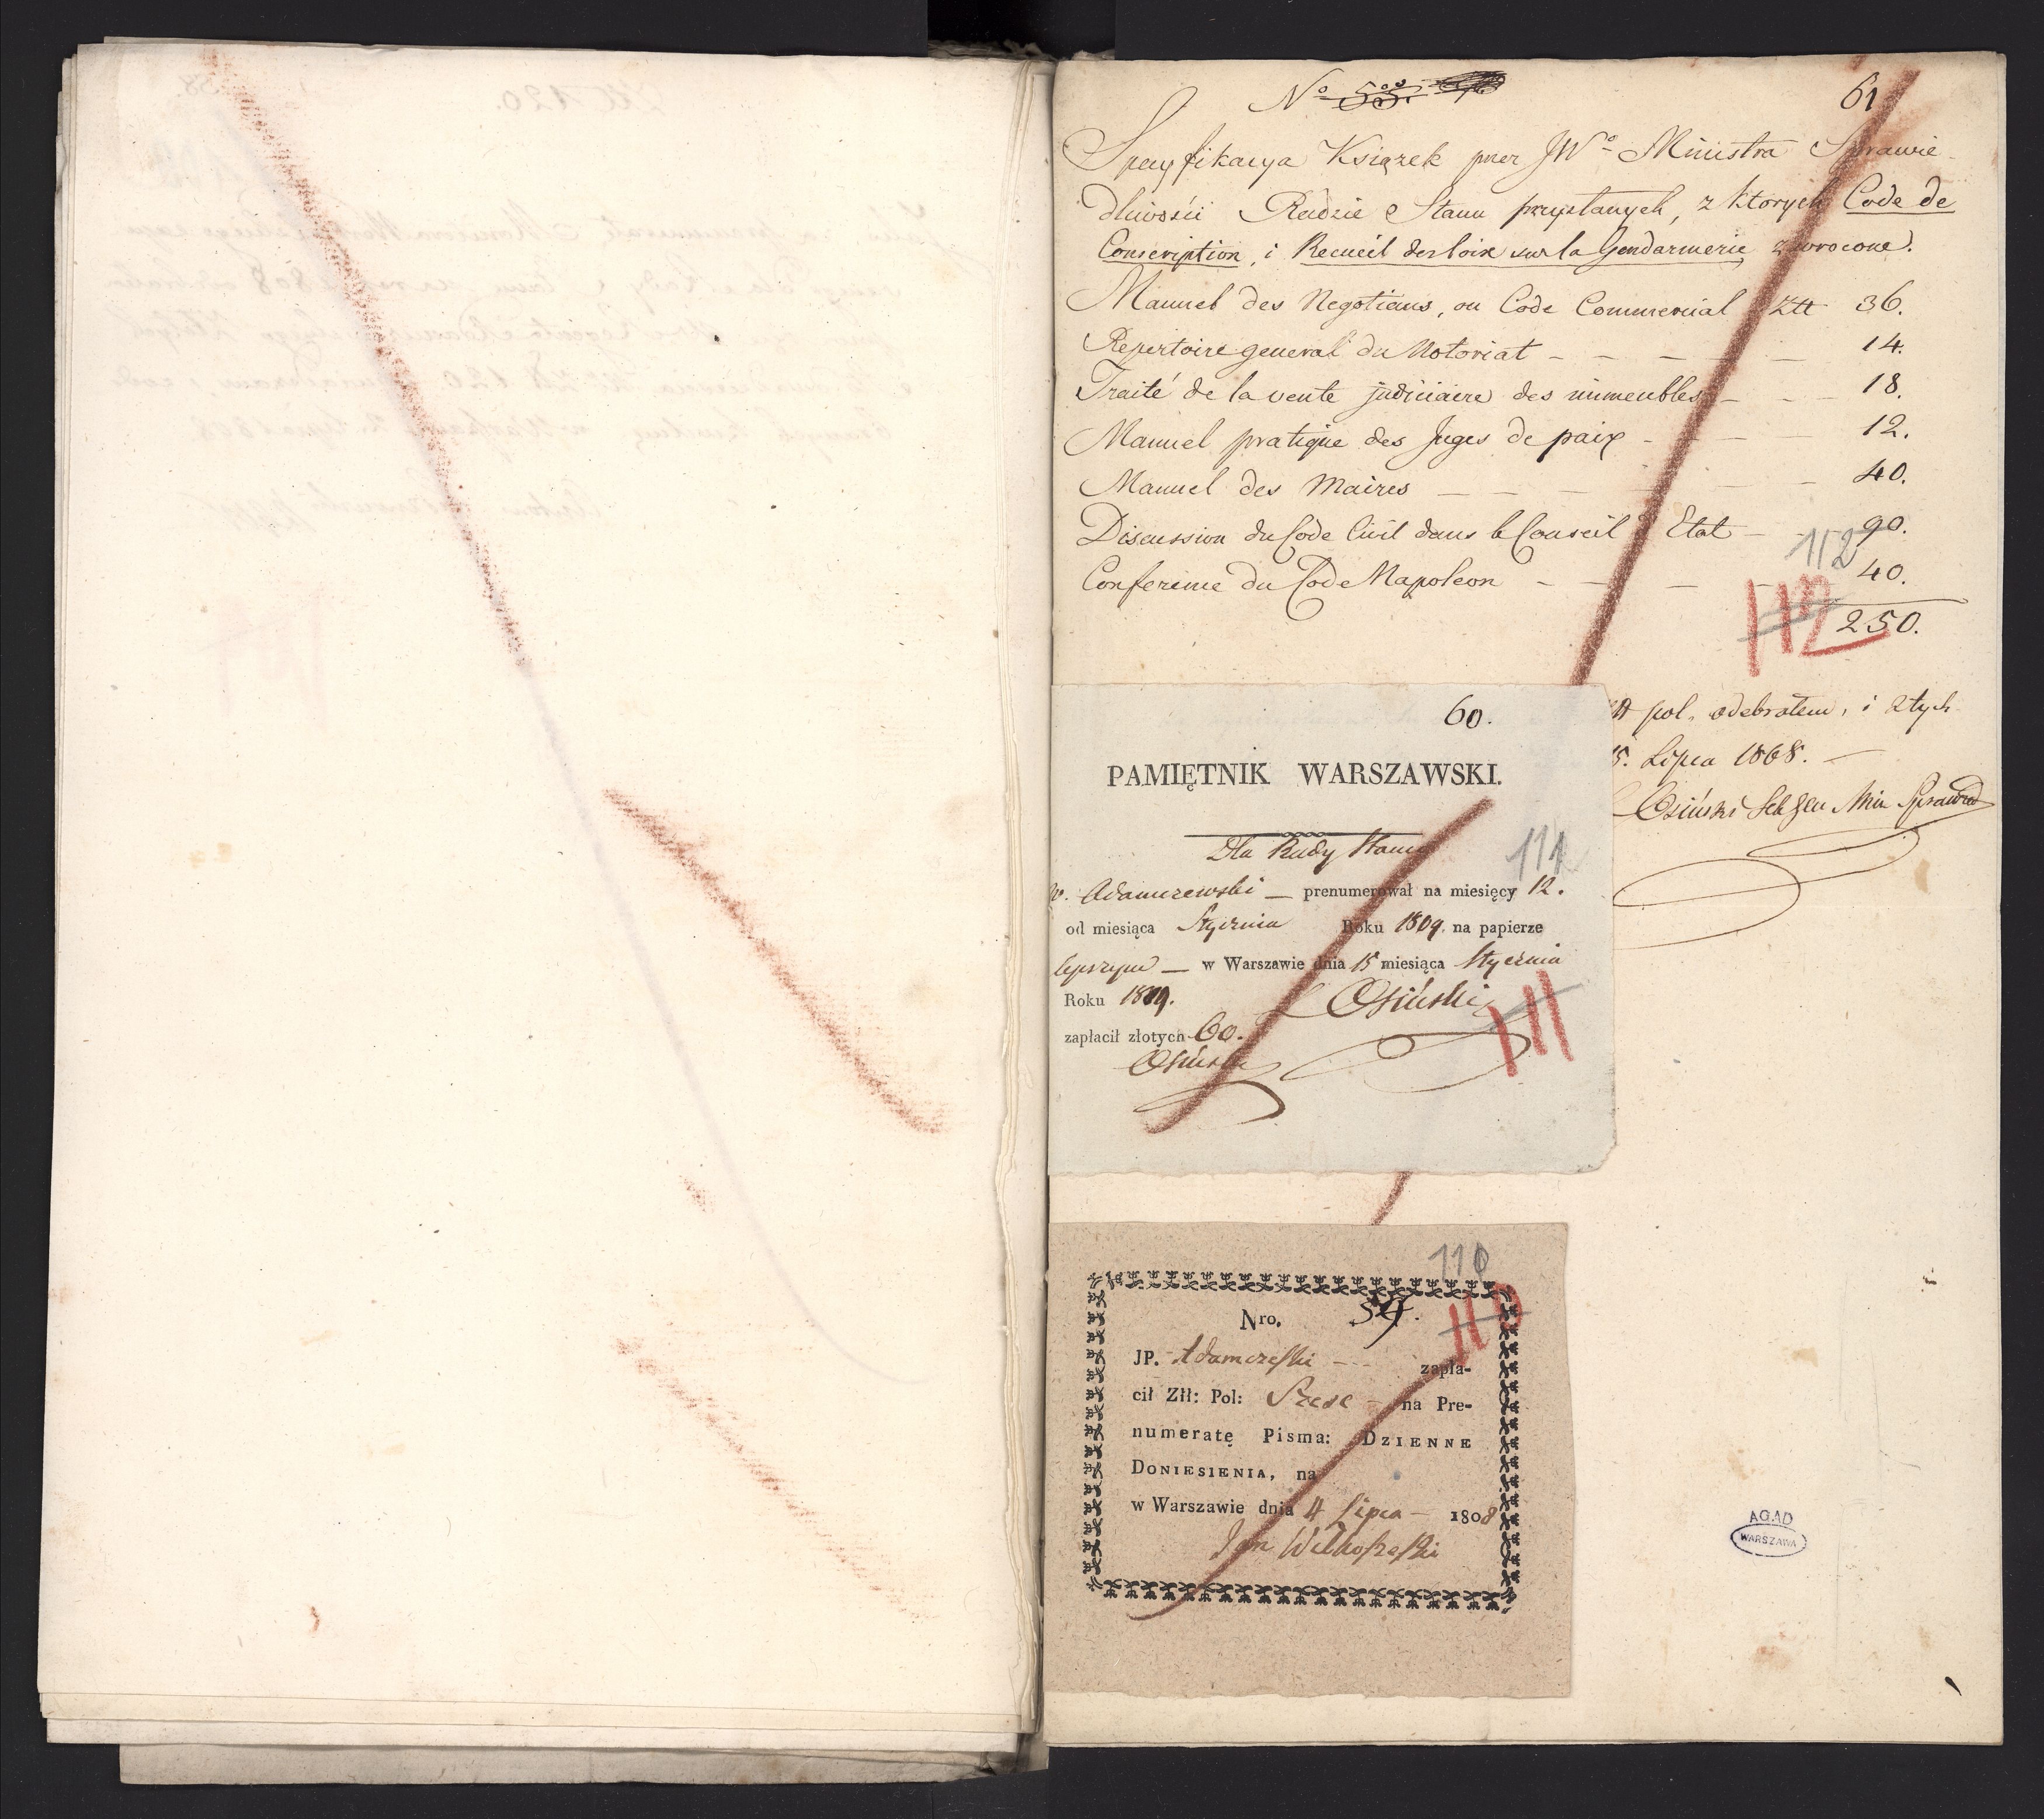 61
Nº 55.
Specyfikacya Książek przez JWº Ministra Sprawie-
dliwości Radzie Stanu przysłanych, z których Code de
Conscription, i Recueil des loix sur la Gendarmerie zwrocone.
Manuel des Negotians, ou Code Commercial Złł 36.
Repertoire general du Notariat – – – – – 14.
Traité de la vente judiciaire des immeubles – – – 18.
Manuel pratique des Juges de paix – – – – 12.
Manuel des Maires – – – – – – – 40.
Discussion du Code Civil dans le Conseil d'Etat – – 90.
112
Conference du Code Napoleon – – – – 40.
112
250.
pol. odebrałem, i z tych
15. Lipca 1808. –
L Osiński Sek Jen Min Sprawied
60.
PAMIĘTNIK WARSZAWSKI.
Dla Rady Stanu
111
W. Adamczewski – prenumerował na miesięcy 12.
od miesiąca Stycznia Roku 1809. na papierze
lepszym – w Warszawie dnia 15 miesiąca Stycznia
Roku 1809. L Osiński
111
zapłacił złotych 60.
Osiński
110
Nro. 59.
110
JP. Adamczeski – – zapła-
cił Złł: Pol: Szesc – na Pre-
numeratę Pisma: DZIENNE
DONIESIENIA, na
w Warszawie dnia 4 Lipca – 1808
Jan
AGAD
WARSZAWA